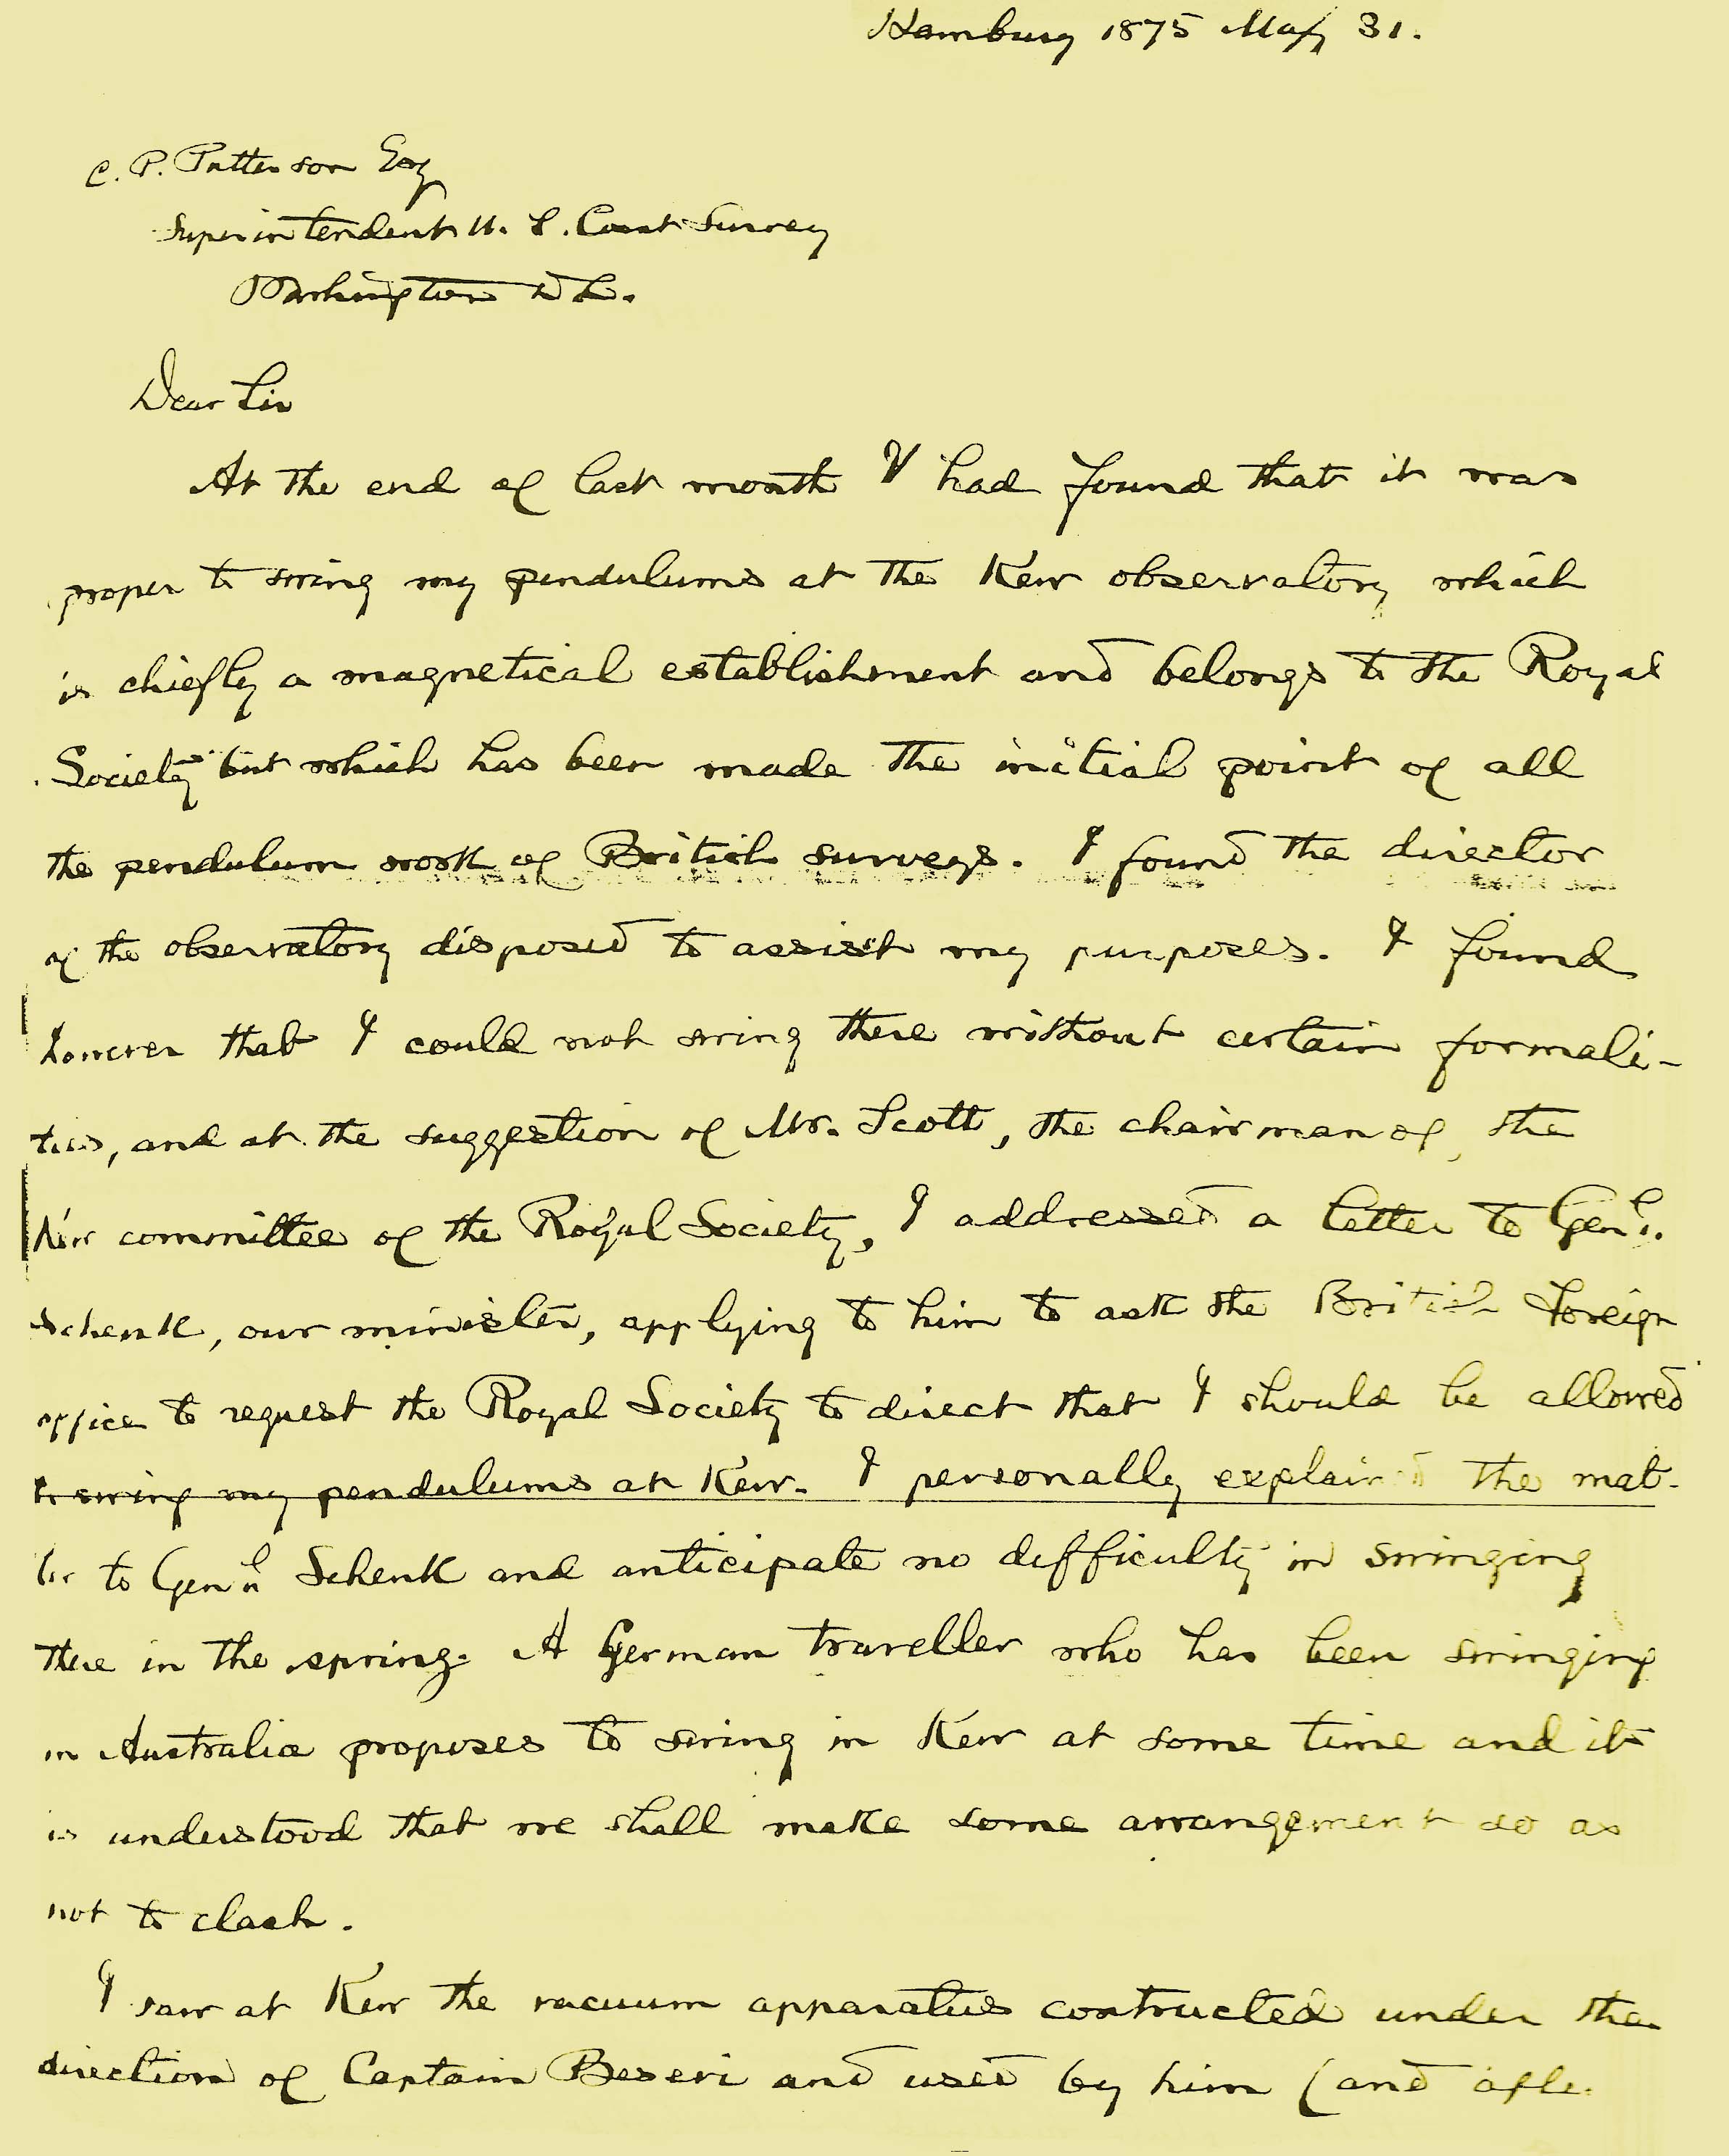 Hamburg 1875 May 31.
C. P. Patterson Esq
Superintendent U. S. Coast Survey
Washington D C.
Dear Sir
At the end of last month I had found that it was
proper to swing my pendulums at the Kew observatory which
is chiefly a magnetical establishment and belongs to the Royal
Society but which has been made the initial point of all
the pendulum work of British surveys. I found the director
of the observatory disposed to assist my purposes. I found
however that I could not swing there without certain formali-
ties, and at the suggestion of Mr. Scott, the chairman of, the
Kew committee of the Royal Society, I addressed a letter to Genl.
Schenk, our minister, applying to him to ask the British foreign
office to request the Royal Society to direct that I should be allowed
to swing my pendulums at Kew. I personally explained the mat-
ter to Genl Schenk and anticipate no difficulty in swinging
there in the spring. A German traveller who has been swinging
in Australia proposes to swing in Kew at some time and it
is understood that we shall make some arrangement so as
not to clash.
I saw at Kew the vacuum apparatus contructed under the
direction of Captain Beseri and used by him (and afte